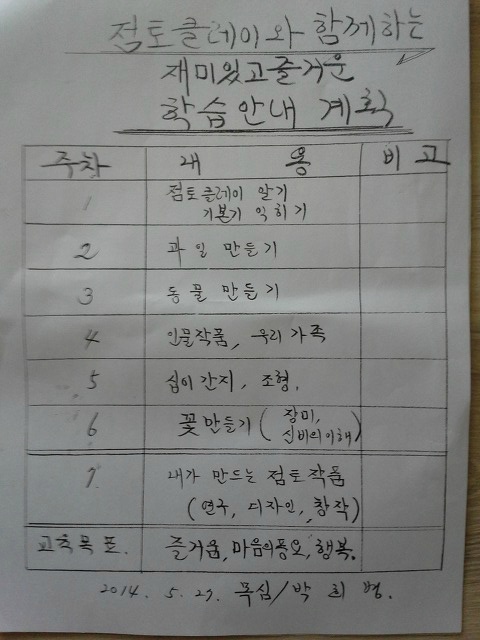 점토클레이와 함께하는
재미있고즐거운
학습안내 계획
주차 내 용 비고
1 점토클레이 알기
기본기 익히기
2 과일 만들기
3 동물 만들기
4 인물작품, 우리가족
5 십이간지, 조형,
6 꽃만들기 (장미,
신비의이해)
7 내가 만드는 점토작품
(연구, 디자인, 창작)
교육목표. 즐거움, 마음의풍요, 행복.
2014. 5. 27. 목심/박 희 병.